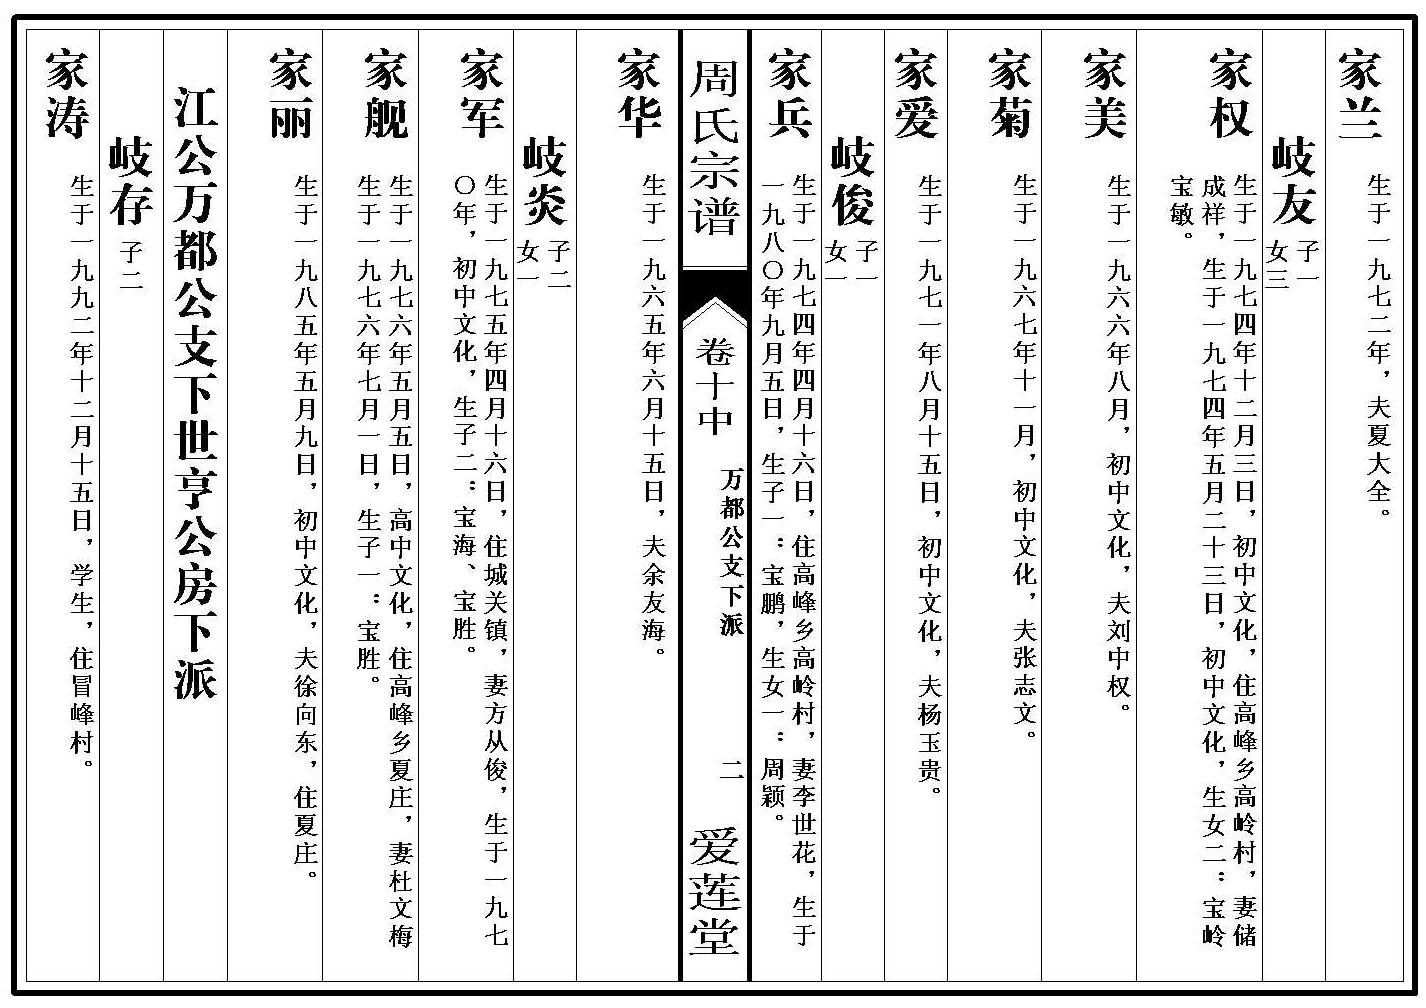 家兰
生于一九七二年，夫夏大全。
岐友
子一
女三
家权
生于一九七四年十二月三日，初中文化，住高峰乡高岭村，妻储
成祥，生于一九七四年五月二十三日，初中文化，生女二：宝岭
宝敏。
家美
生于一九六六年八月，初中文化，夫刘中权。
家菊
生于一九六七年十一月，初中文化，夫张志文。
家爱
生于一九七一年八月十五日，初中文化，夫杨玉贵。
岐俊
子一
女一
家兵
生于一九七四年四月十六日，住高峰乡高岭村，妻李世花，生于
一九八〇年九月五日，生子一：宝鹏，生女一：周颖。
周氏宗谱
卷十中
万都公支下派
二
爱莲堂
家华
生于一九六五年六月十五日，夫余友海。
岐炎
子二
女一
家军
生于一九七五年四月十六日，住城关镇，妻方从俊，生于一九七
〇年，初中文化，生子二：宝海、宝胜。
家舰
生于一九七六年五月五日，高中文化，住高峰乡夏庄，妻杜文梅
生于一九七六年七月一日，生子一：宝胜。
家丽
生于一九八五年五月九日，初中文化，夫徐向东，住夏庄。
江公万都公支下世亨公房下派
岐存
子二
家涛
生于一九九二年十二月十五日，学生，住冒峰村。